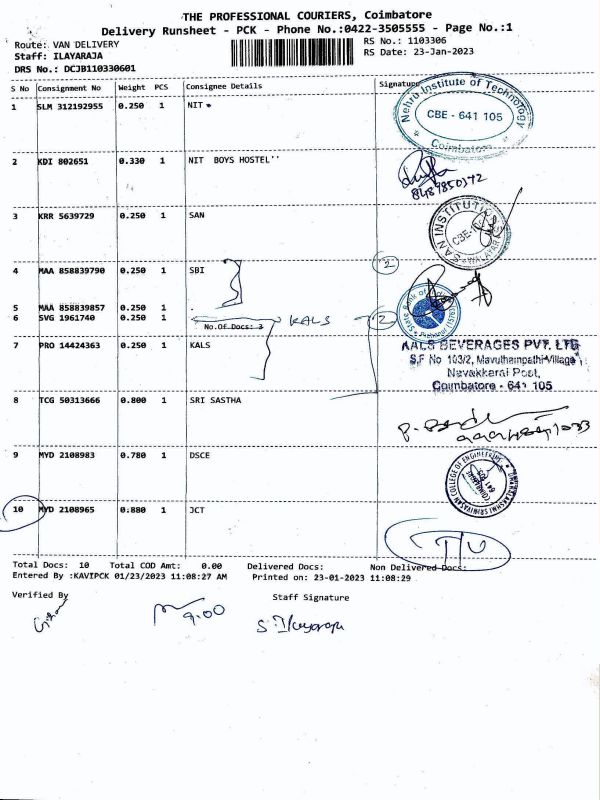 THE PROFESSIONAL COURIERS, Coimbatore
Delivery Runsheet - PCK - Phone No.:0422-3505555 - Page No.:1
Route: VAN DELIVERY
RS No.: 1103306
Staff: ILAYARAJA
RS Date: 23-Jan-2023
DRS No.: DCJB110330601
S No Consignment No Weight PCS Consignee Details Signature
1 SLM 312192955 0.250 1 NIT
Nehru Institute of Technology
CBE - 641 105
Coimbatore
2 KDI 802651 0.330 1 NIT BOYS HOSTEL''
3 KRR 5639729 0.250 1 SAN
SAN INSTITUTI
CBE-
WALAYAR
4 MAA 858839790 0.250 1 SBI
2
5 MAA 858839857 0.250 1
6 SVG 1961740 0.250 1
No.Of Docs: 3
KALS
2
State Bank of
7 PRO 14424363 0.250 1 KALS
KALS BEVERAGES PVT. LTD
S.F No 103/2, Mavuthampathi Village
Navakkarai Post,
Coimbatore - 641 105
8 TCG 50313666 0.800 1 SRI SASTHA
9 MYD 2108983 0.780 1 DSCE
DHANALAKSHMI SRINIVASAN COLLEGE OF ENGINEERING
COIMBATORE
641 105
10 MYD 2108965 0.880 1 JCT
Total Docs: 10 Total COD Amt: 0.00 Delivered Docs: Non Delivered Docs:
Entered By :KAVIPCK 01/23/2023 11:08:27 AM Printed on: 23-01-2023 11:08:29
Verified By
Staff Signature
9.00
S. Ilayaraja